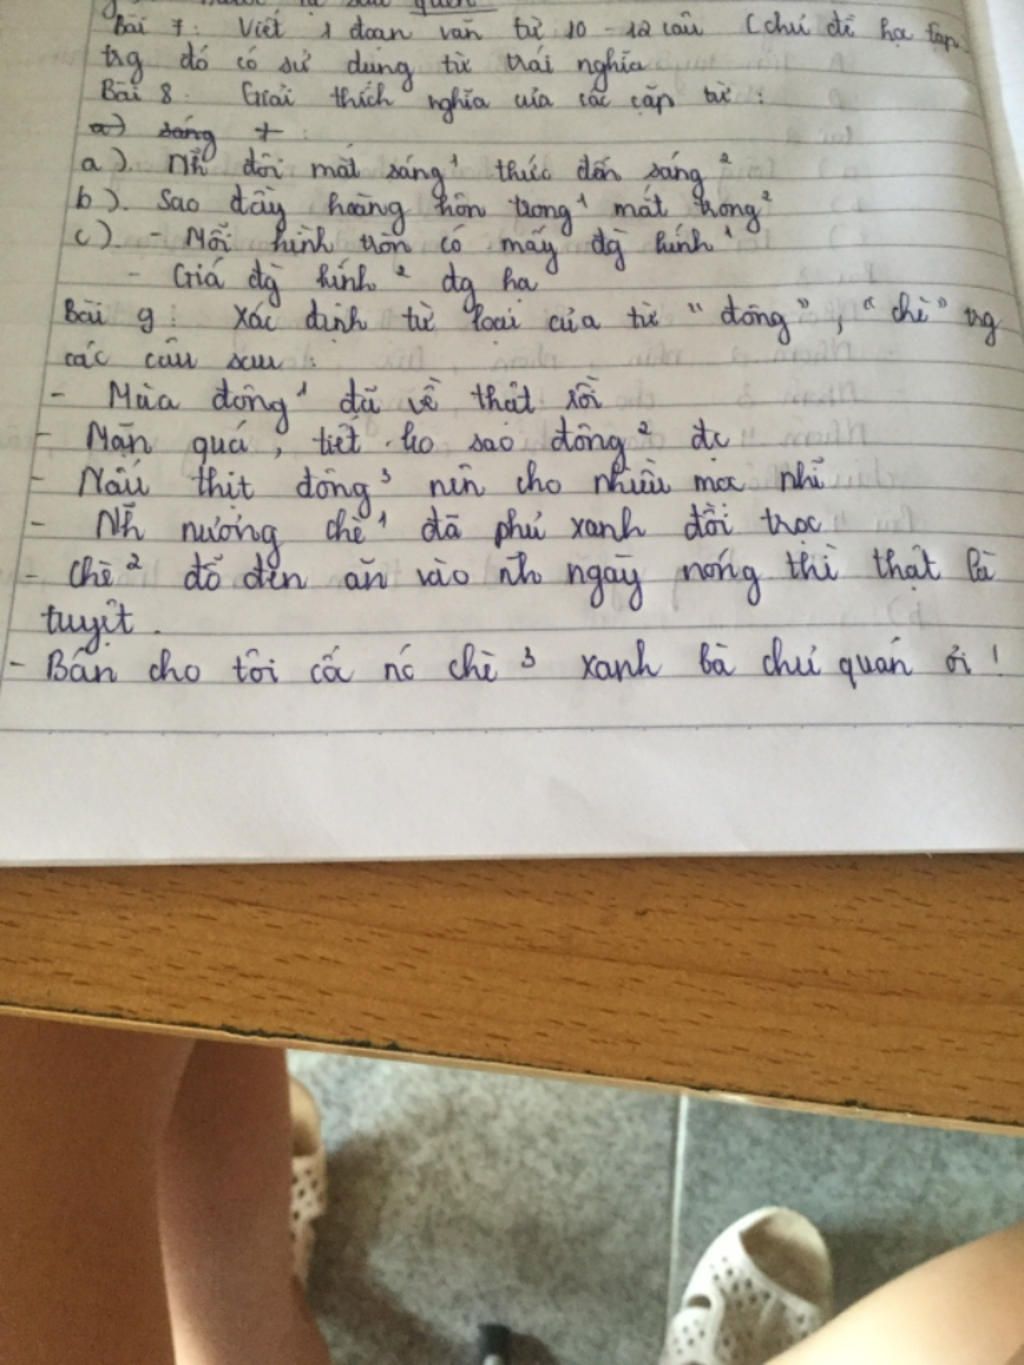 Bài 7: Viết 1 đoạn văn từ 10 - 12 câu (chủ đề họ tập
trg đó có sử dụng từ trái nghĩa
Bài 8: Giải thích nghĩa của các cặp từ :
a) sáng +:
a). Nh~ đôi mắt sáng¹ thức đến sáng²
b). Sao đầy hoàng hôn trong¹ mắt trong²
c). - Mỗi hình tròn có mấy đg` kính¹
- Giá đg` kính² đg hạ
Bài 9: Xác định từ loại của từ "đông", "chè" trg
các câu sau :
- Mùa đông¹ đã về thật rồi
- Mặn quá, tiết ko sao đông² đc
- Nấu thịt đông³ nên cho nhiều mọc nhĩ
- Nh~ nương chè¹ đã phủ xanh đồi trọc
- Chè² đỗ đen ăn vào nh~ ngày nóng thì thật là
tuyệt.
- Bán cho tôi cố nc chè³ xanh bà chủ quán ơi!